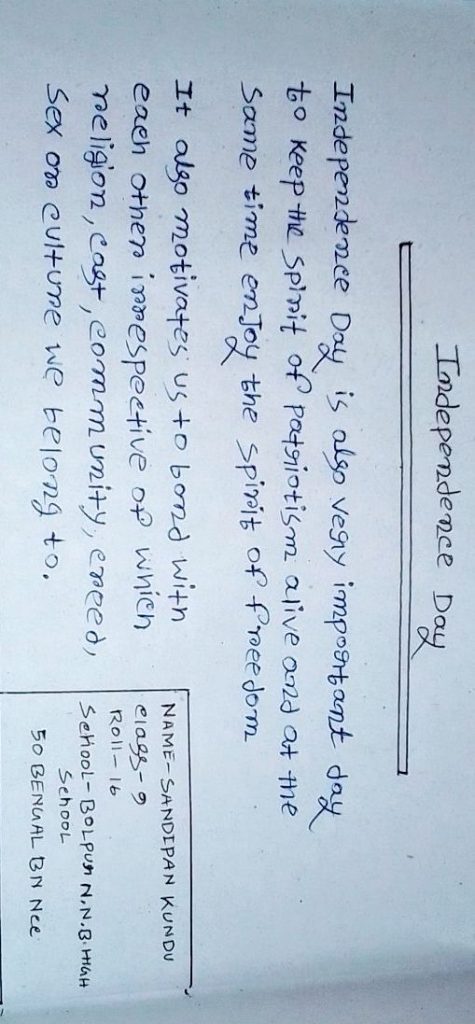 Independence Day
Independence Day is also very important day
to keep the spirit of patriotism alive and at the
same time enjoy the spirit of freedom
It also motivates us to bond with
each other irrespective of which
religion, cast, community, creed,
sex or culture we belong to.
NAME- SANDIPAN KUNDU
class- 9
Roll- 16
School- BOLPUR N.N.B. HIGH
School
50 BENGAL BN Ncc